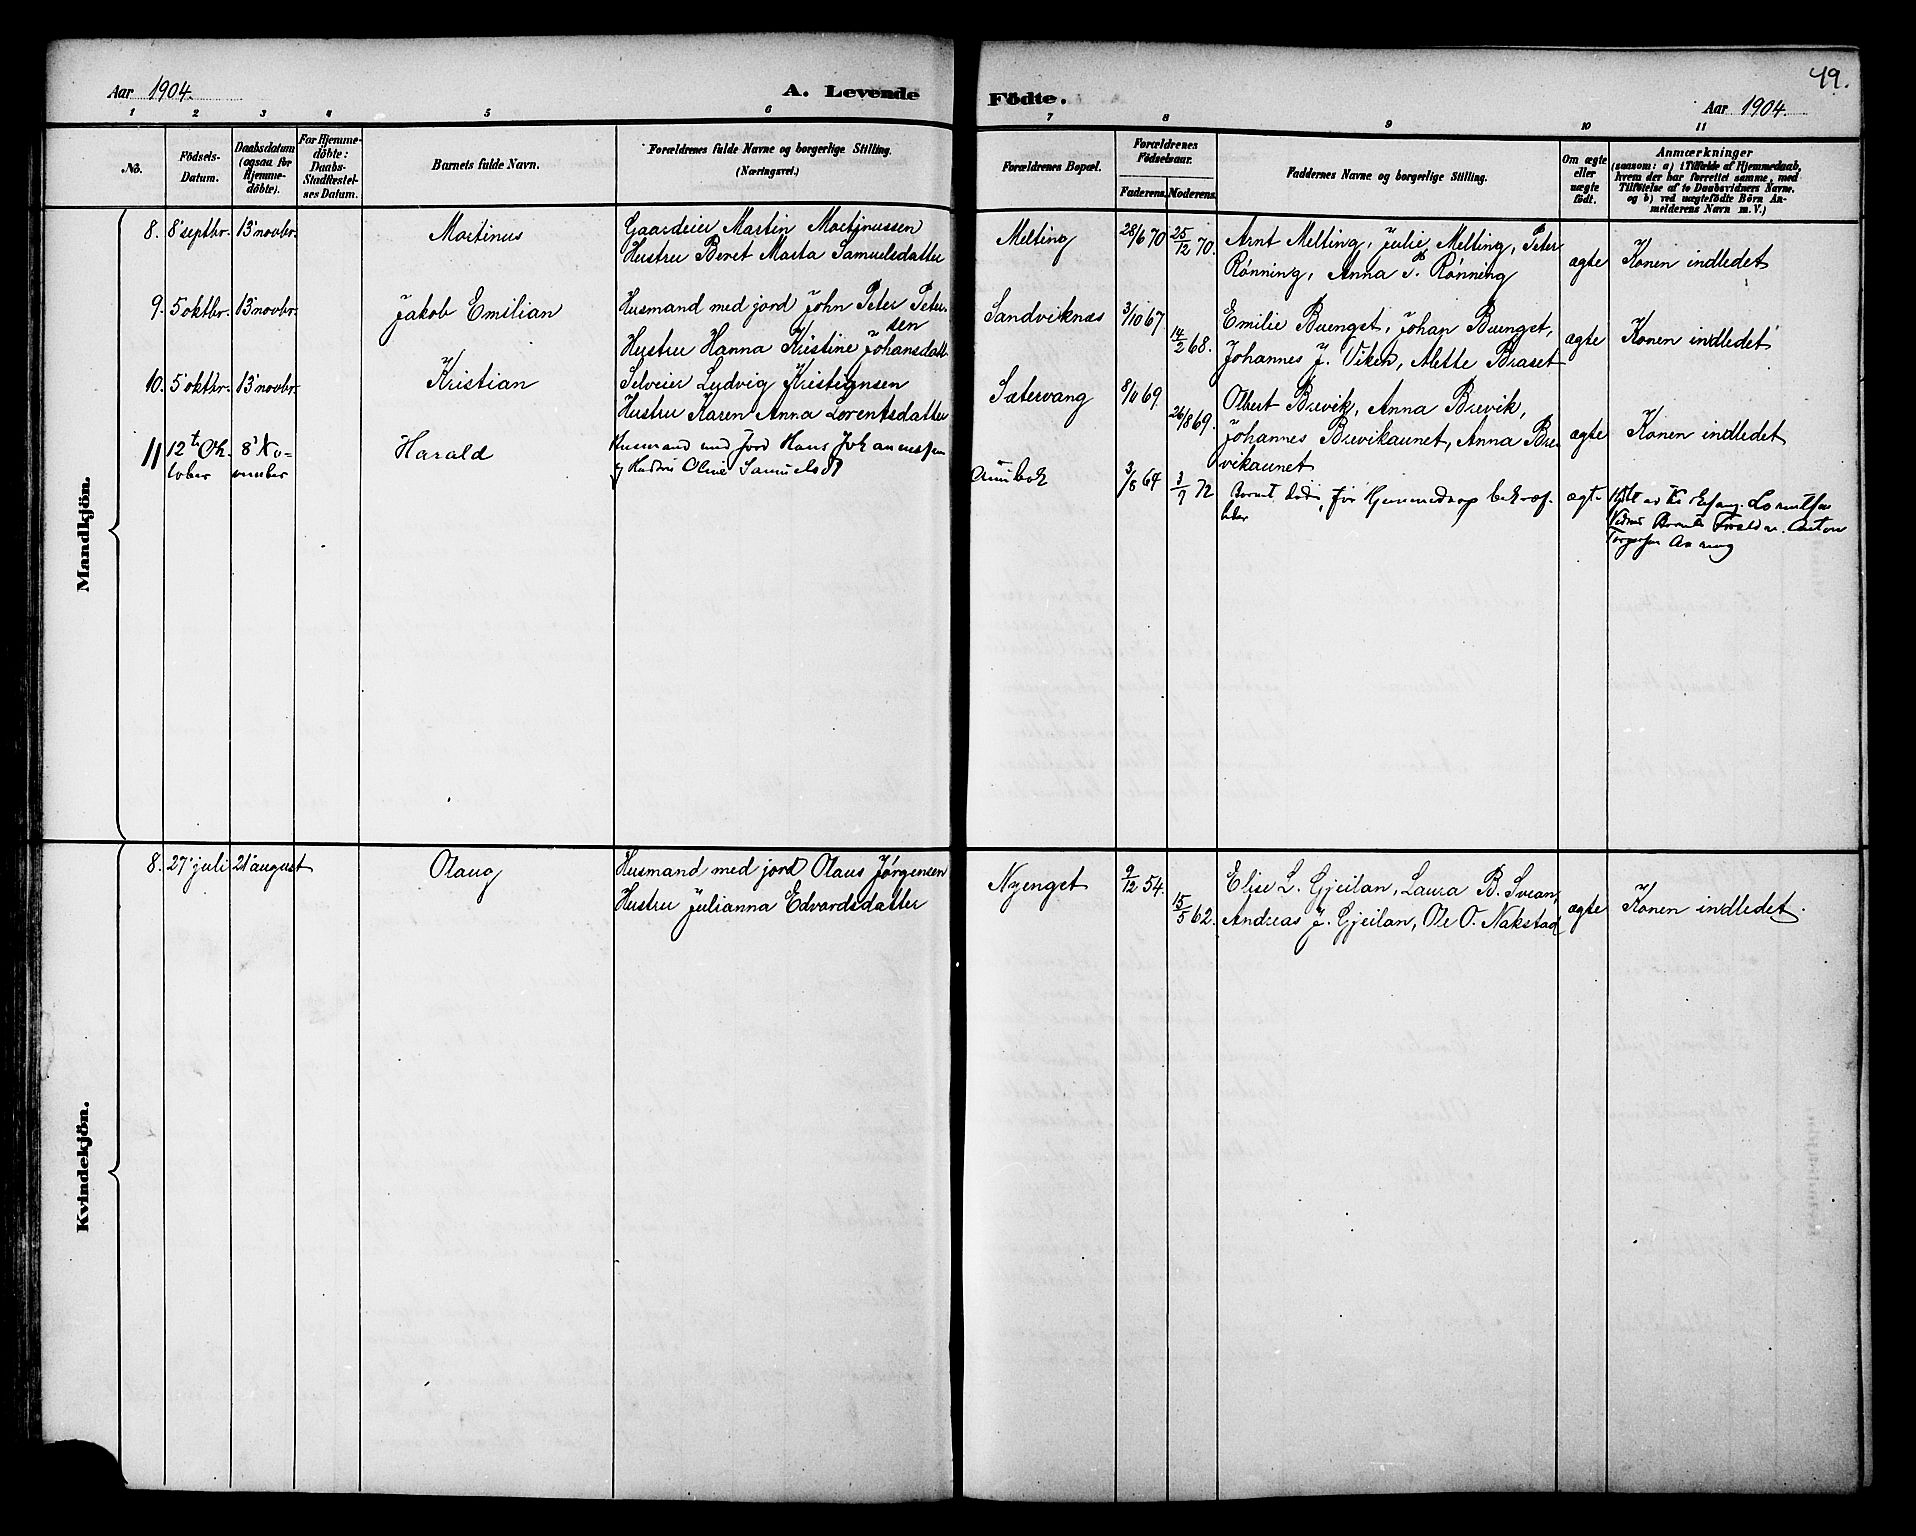 49.
Aar 1904.
A. Levende Födte.
Aar 1904.
1 2 3 4 5 6 7 8 9 10 11
No.
Födsels-
Datum.
Daabsdatum
(ogsaa for
Hjemme-
döbte).
For Hjemme-
döbte:
Daabs-
Stadfæstel-
ses Datum.
Barnets fulde Navn.
Forældrenes fulde Navne og borgerlige Stilling.
(Næringsvei.)
Forældrenes Bopæl.
Forældrenes
Födselsaar.
Faderens. Moderens.
Faddernes Navne og borgerlige Stilling.
Om ægte
eller
uægte
födt.
Anmærkninger
(saasom: a) i Tilfælde af Hjemmedaab,
hvem der har forrettet samme, med
Tilföielse af to Daabsvidners Navne.
og b) ved uægtefödte Börn An-
melderens Navn m. V.)
Mandkjön.
8. 8' septbr. 13' novbr. Martinus Gaardeier Martin Martinussen Melting 28/6 70 25/12 70. Arnt Melting, Julie Melting, Peter ægte Konen indledet
Hustru Beret Marta Samuelsdatter Rønning, Anna P. Rønning
9. 5 oktbr. 13' novbr. Jakob Emilian Husmand med jord John Peter Peter- Sandviknæs 3/10 67 14/2 68. Emilie Buenget, Johan Buenget, ægte Konen indledet
sen
Hustru Hanna Kristine Johansdatt. Johannes J. Viken, Mette Braset
10. 5' oktbr. 13' novbr. Kristian Selveier Ludvig Kristiansen Sætervang 8/11 69. 26/8 69. Olbert Brevik, Anna Brevik, ægte Konen indledet
Hustru Karen Anna Lorentsdatter Johannes Brevikaunet, Anna Bre-
vikaunet
11 12te Ok- 8' No- Harald Husmand med Jord Hans Johannessen 3/8 64 3/7 72 Barnet død før Hjemmedaap bekræf- ægt-
tober vember Hustru Oline Samuelsdt
Kvindekjön.
8. 27' juli 21' august Olaug Husmand med jord Olaus Jørgensen Nyenget 9/12 54. 15/5 62. Elise L. Gjeilan, Laura B. Svean, ægte Konen indledet.
Hustru Julianna Edvardsdatter Andreas J. Gjeilan, Ole O. Nakstad